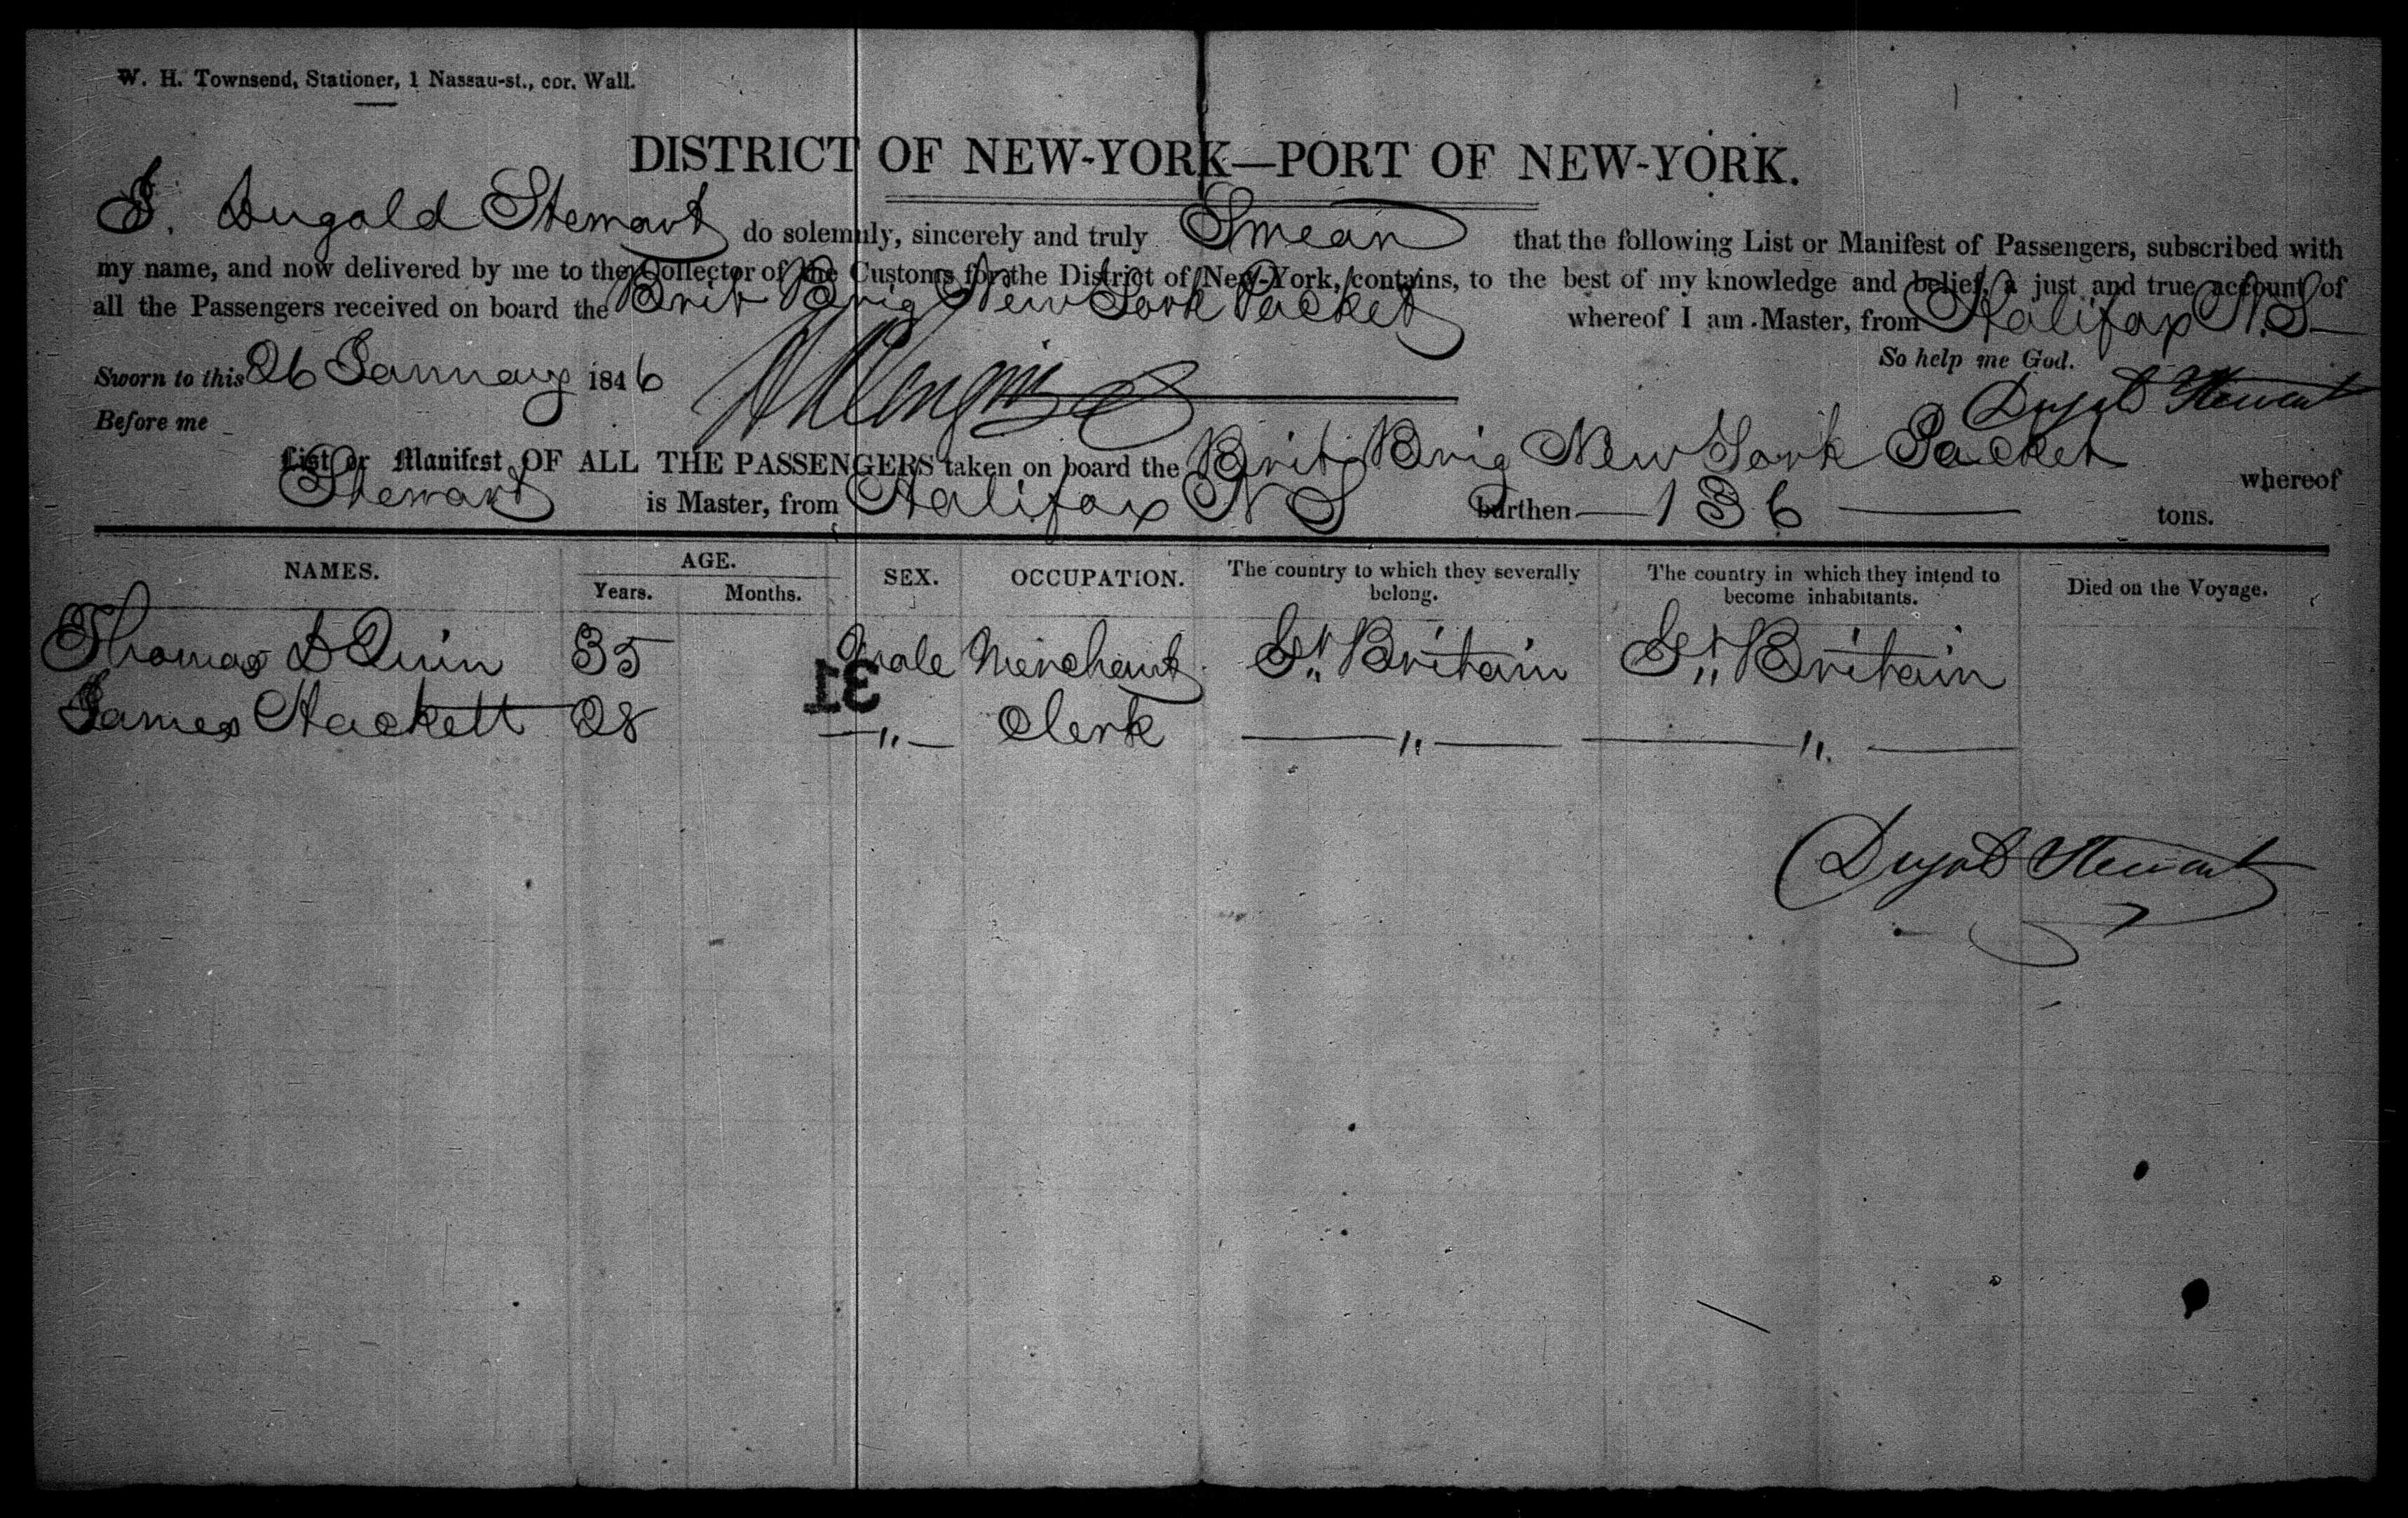 W. H. Townsend, Stationer, 1 Nassau-st., cor. Wall.
DISTRICT OF NEW-YORK—PORT OF NEW-YORK.
I. Dugald Stewart do solemnly, sincerely and truly Swear that the following List or Manifest of Passengers, subscribed with
my name, and now delivered by me to the Collector of the Customs for the District of New-York, contains, to the best of my knowledge and belief, a just and true account of
all the Passengers received on board the Brit Brig New York Packet whereof I am Master, from Halifax N.S
Sworn to this 26 January 1846 So help me God.
Before me Dugald Stewart
List or Manifest OF ALL THE PASSENGERS taken on board the Brit Brig New York Packet whereof
Stewart is Master, from Halifax N S burthen 136 tons.
NAMES. AGE. Years. Months. SEX. OCCUPATION. The country to which they severally belong. The country in which they intend to become inhabitants. Died on the Voyage.
Thomas D Quin 35 Male Merchant Gt. Britain Gt. Britain
James Hackett 28 — " — Clerk — " — — " —
31
Dugald Stewart